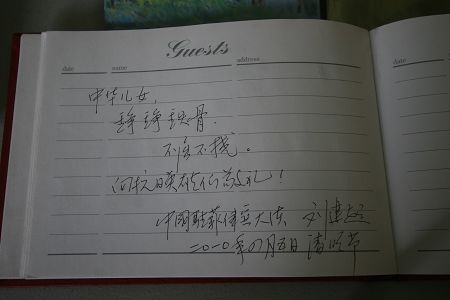 Guests
date name address
中华儿女,
铮铮铁骨.
不屈不挠。
向抗日英雄们敬礼!
中国驻菲律宾大使 刘建超
二〇一〇年四月五日 清明节
date